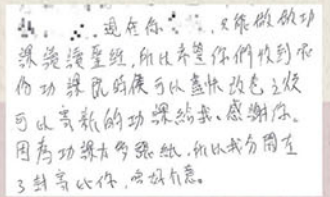 現在你 只能做做功
課讀讀聖經,所以希望你們收到呢
份功課既時候可以盡快改卷之後
可以寄新的功課給我。感謝你。
因為功課有多張紙,所以我分開左
3封寄比你,唔好介意。